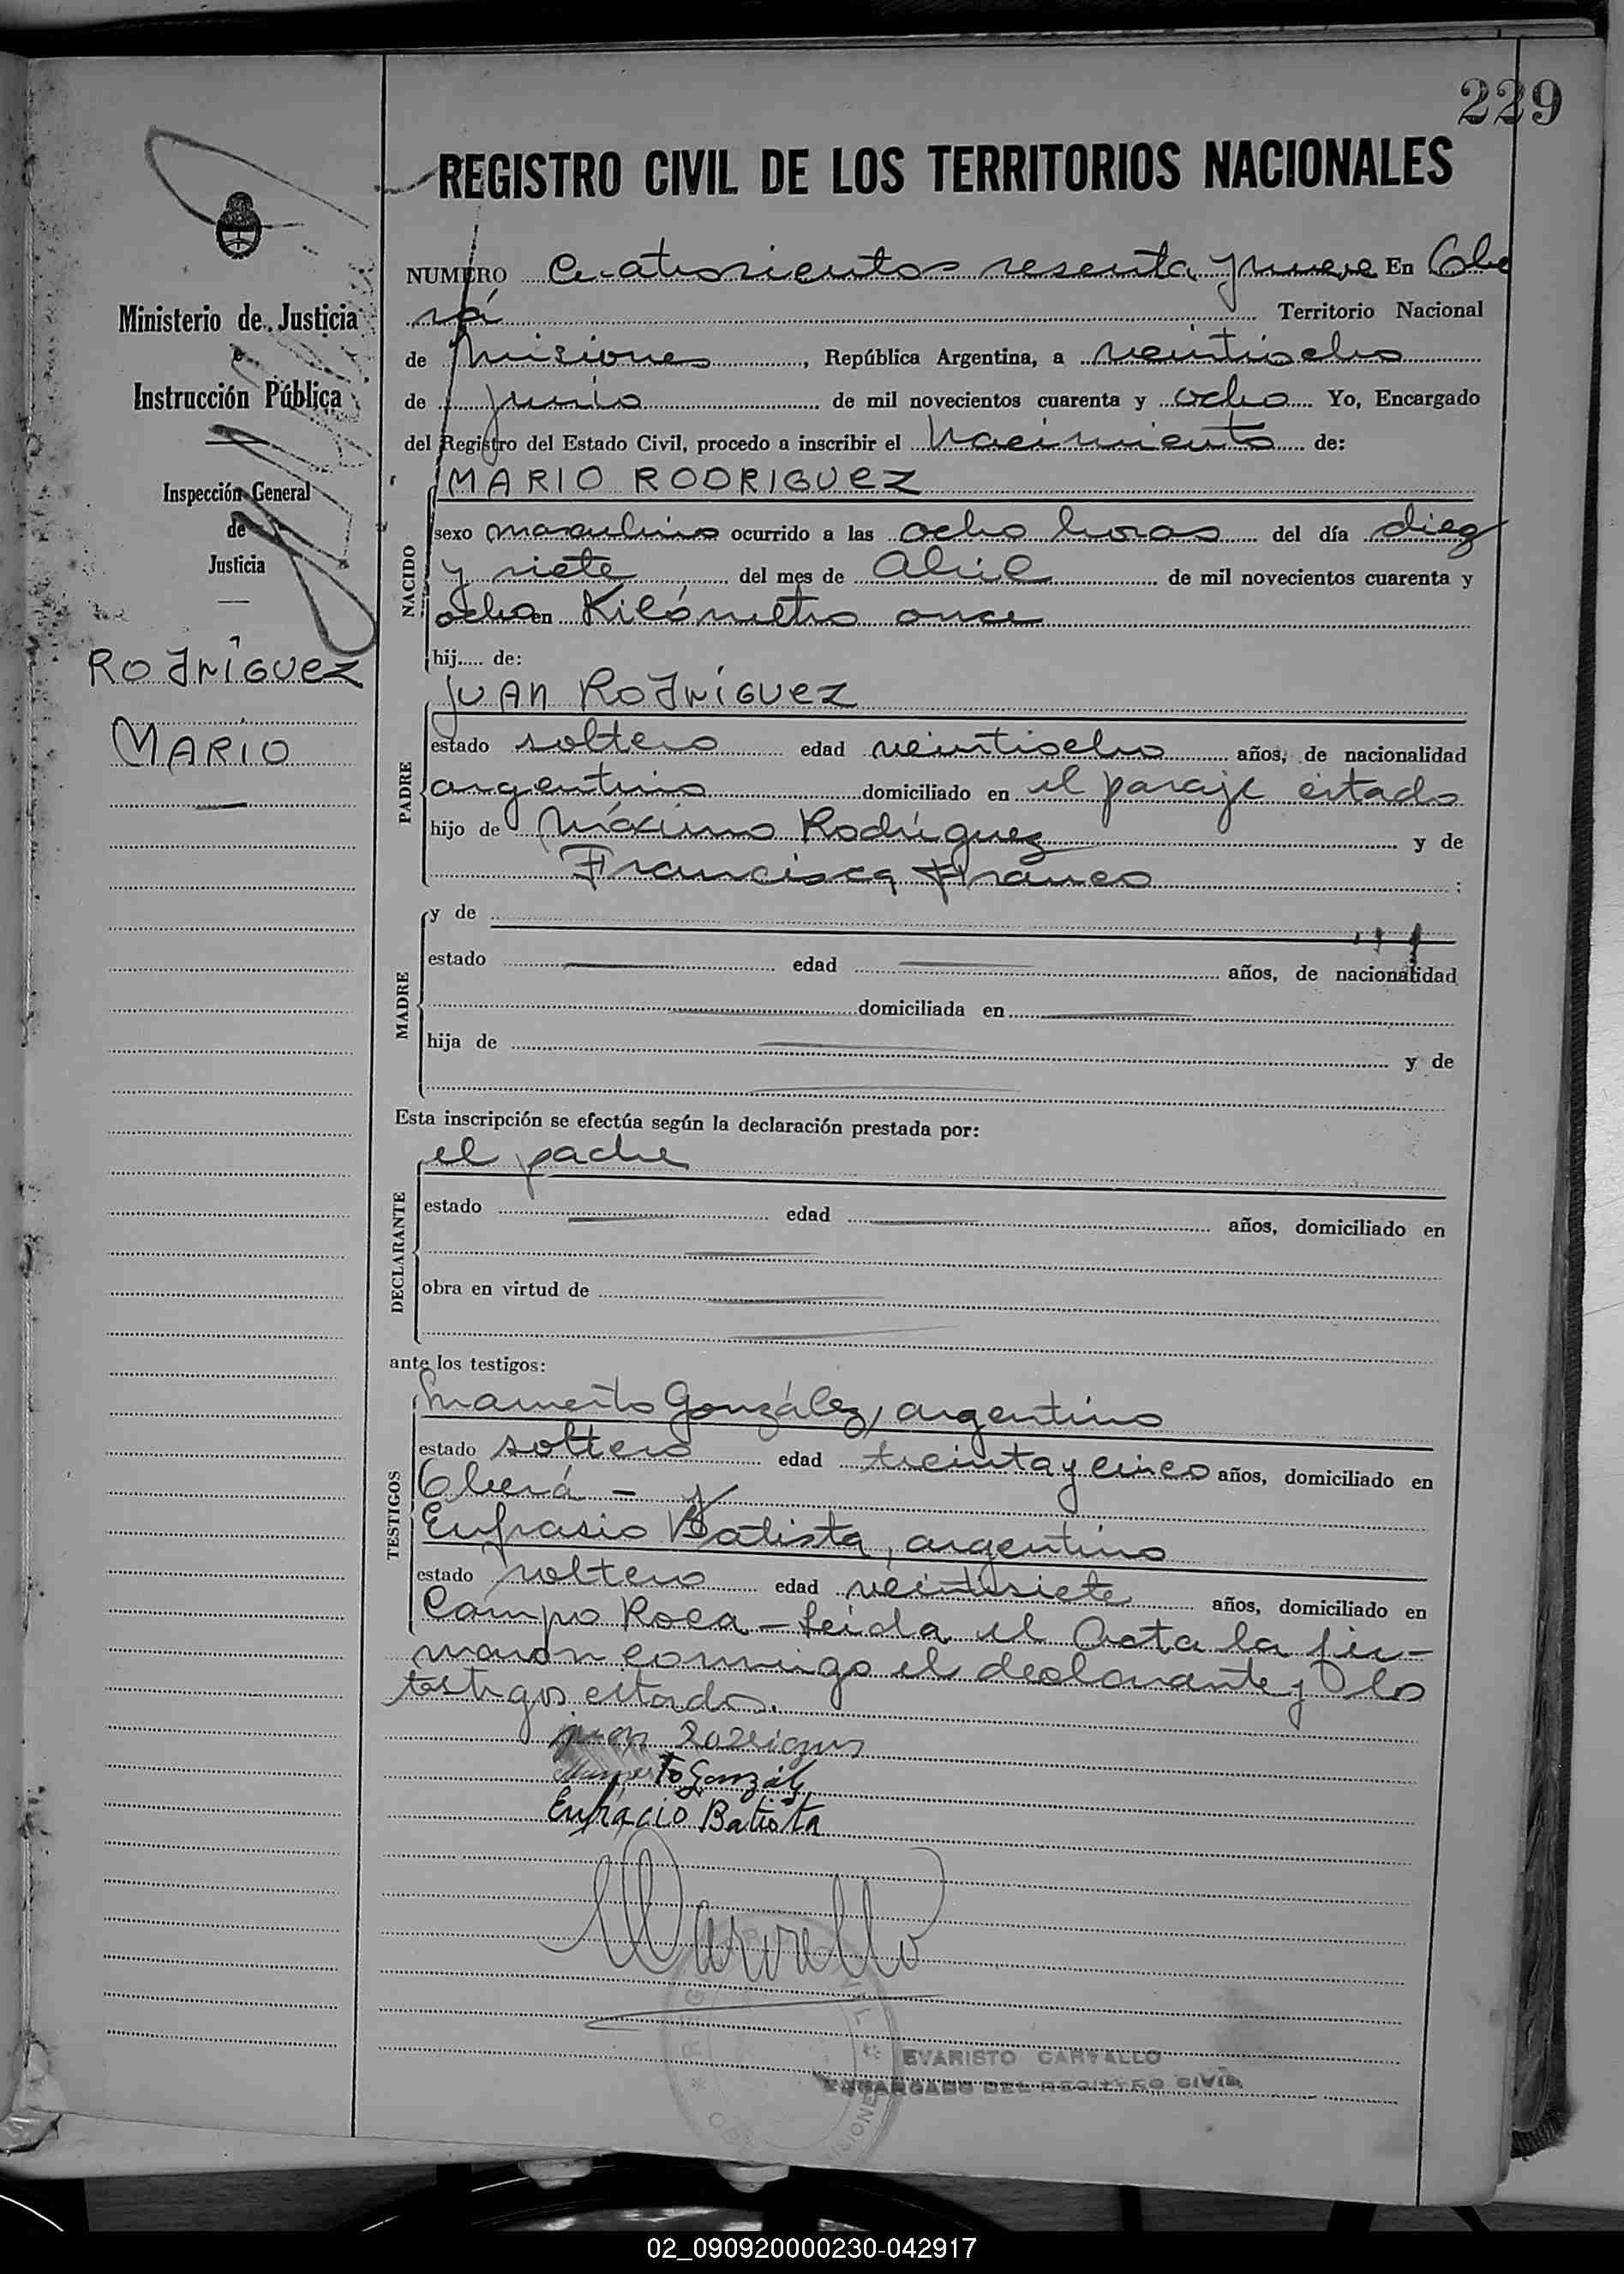 229
REGISTRO CIVIL DE LOS TERRITORIOS NACIONALES
Ministerio de Justicia
e
Instrucción Pública
Inspección General
de
Justicia
RODRÍGUEZ
MARIO
NUMERO Cuatrocientos sesenta y nueve En Obe
rá Territorio Nacional
de Misiones, República Argentina, a veintiocho
de junio de mil novecientos cuarenta y ocho Yo, Encargado
del Registro del Estado Civil, procedo a inscribir el nacimiento de:
MARIO RODRIGUEZ
NACIDO
sexo masculino ocurrido a las ocho horas del día diez
y siete del mes de Abril de mil novecientos cuarenta y
ocho en Kilómetro once
hij..... de:
JUAN RODRÍGUEZ
PADRE
estado soltero edad veintiocho años, de nacionalidad
argentino domiciliado en el paraje citado
hijo de Máximo Rodríguez y de
Francisca Franco ;
MADRE
y de
estado edad años, de nacionalidad
domiciliada en
hija de y de
Esta inscripción se efectúa según la declaración prestada por:
el padre
DECLARANTE
estado edad años, domiciliado en
obra en virtud de
ante los testigos:
TESTIGOS
Mamerto González, argentino
estado soltero edad treinta y cinco años, domiciliado en
Oberá - y
Eufrasio Batista, argentino
estado soltero edad veintisiete años, domiciliado en
Campo Roca - Leida el Acta la fir-
maron conmigo el declarante y los
testigos citados.
juan
Mamerto Gonzál
Eufracio Batista
Carvallo
EVARISTO CARVALLO
ENCARGADO DEL REGISTRO CIVIL
02_090920000230-042917